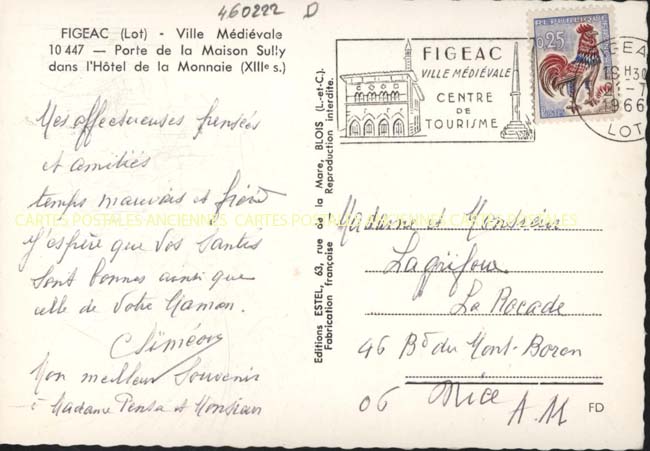 460222 D
FIGEAC (Lot) - Ville Médiévale
10 447 — Porte de la Maison Sully
dans l'Hôtel de la Monnaie (XIIIe s.)
Mes affectueuses pensées
et amitiés
temps mauvais et froid
J'espère que vos Santés
sont bonnes ainsi que
celle de votre Maman.
Mon meilleur Souvenir
à Madame et Monsieur
Editions ESTEL, 63, rue de la Mare, BLOIS (L.-et-C.).
Fabrication française. Reproduction interdite.
FIGEAC
VILLE MÉDIÉVALE
CENTRE
DE
TOURISME
0,25
18 H 30
1966
LOT
Madame et Monsieur
La Rocade
46 Bd du Mont-Boron
06 Nice A.M
FD
CARTES POSTALES ANCIENNES CARTES POSTALES ANCIENNES CARTES POSTALES